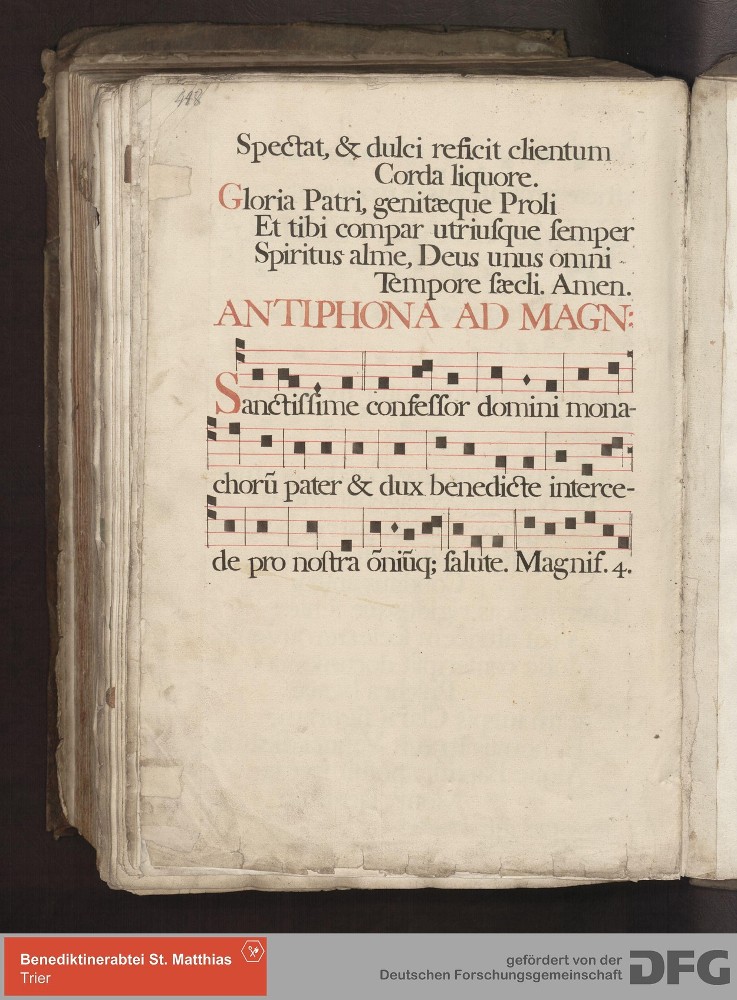 448
Spectat, & dulci reficit clientum
Corda liquore.
Gloria Patri, genitæque Proli
Et tibi compar utriuſque ſemper
Spiritus alme, Deus unus omni
Tempore ſæcli. Amen.
ANTIPHONA AD MAGN:
Sanctiſſime confeſſor domini mona-
chorũ pater & dux benedicte interce-
de pro noſtra õniũq; ſalute. Magnif. 4.
Benediktinerabtei St. Matthias
Trier
gefördert von der
Deutschen Forschungsgemeinschaft
DFG